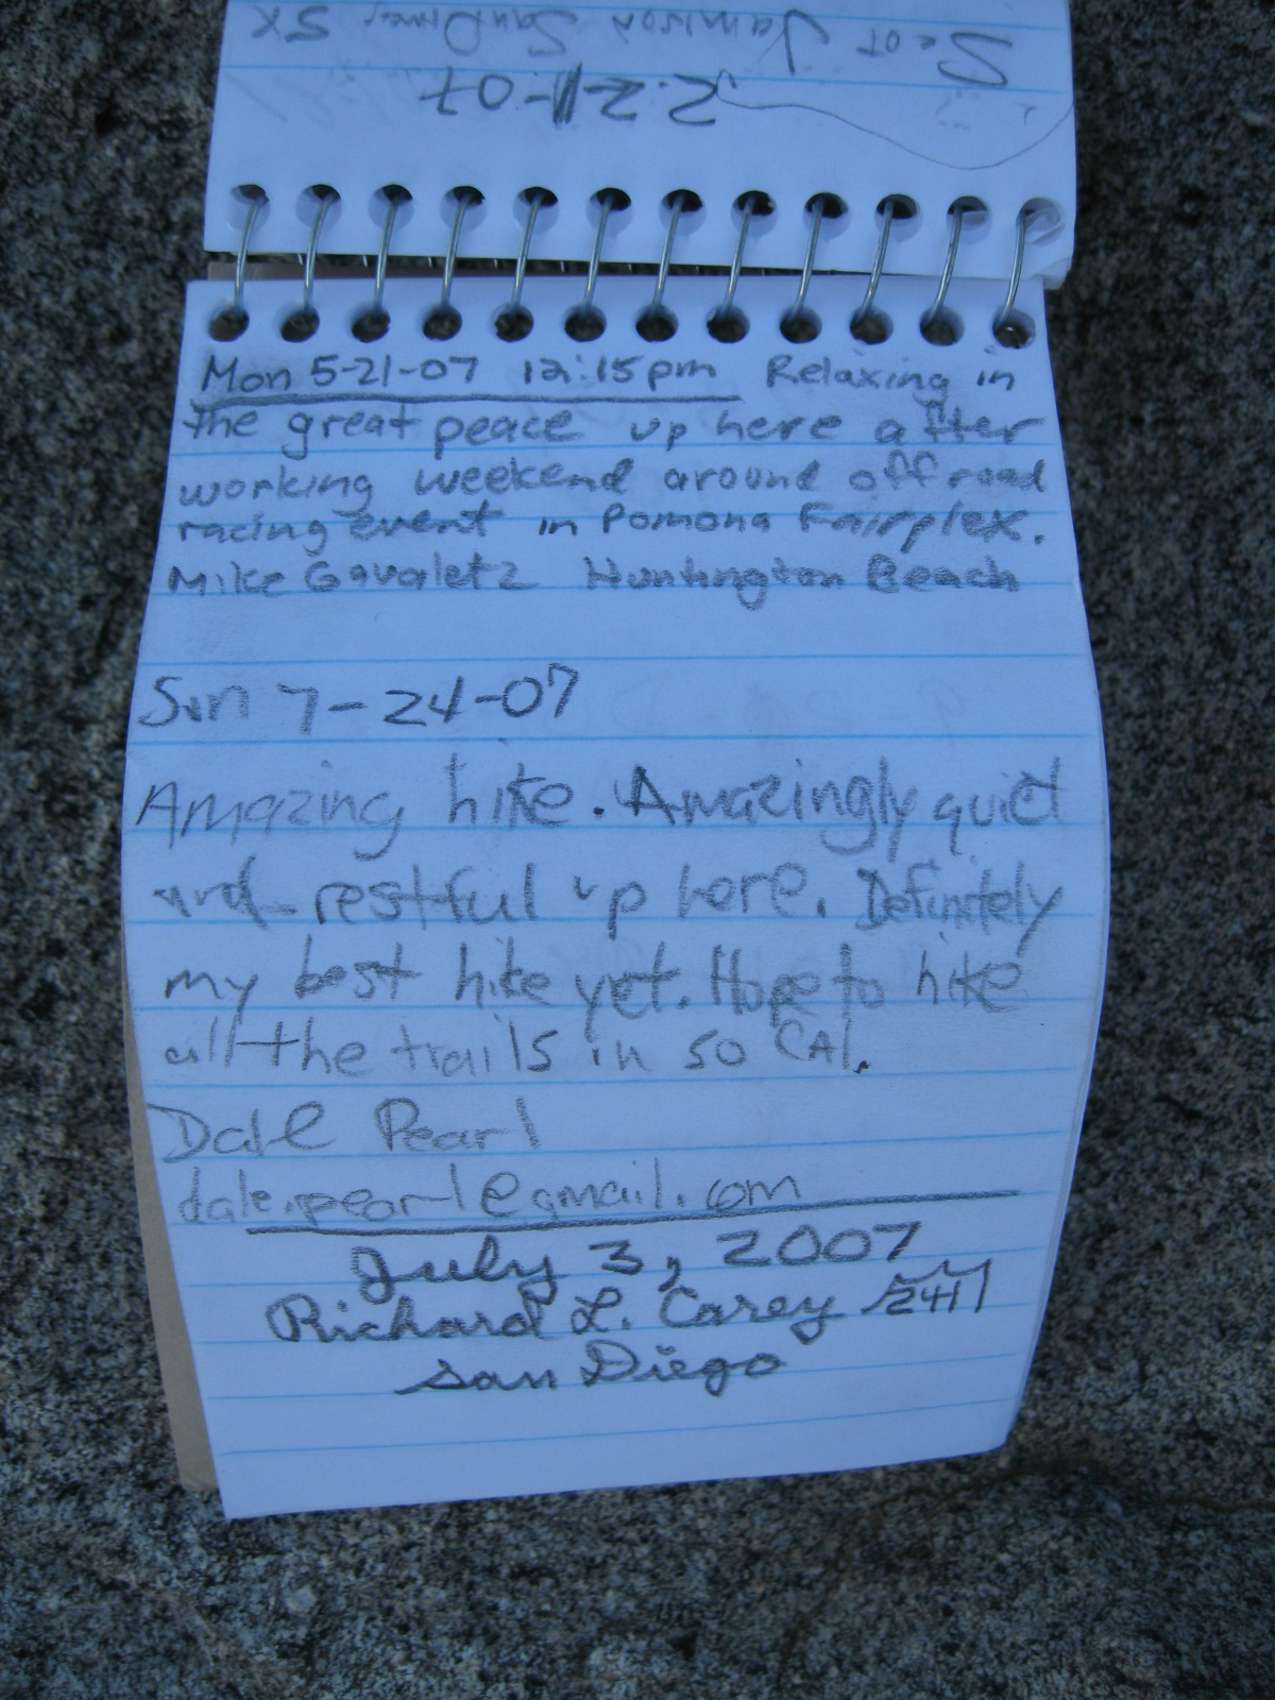 Scot Jamison San Dimas 5X
2-21-07
Mon 5-21-07 12:15pm Relaxing in
the great peace up here after
working weekend around off road
racing event in Pomona Fairplex.
Mike Gavaletz Huntington Beach
Sun 7-24-07
Amazing hike. Amazingly quiet
and restful up here. Definitely
my best hike yet. Hope to hike
all the trails in so CAl.
Dale Pearl
dale.pearl@gmail.com
July 3, 2007
Richard L. Carey 241
San Diego